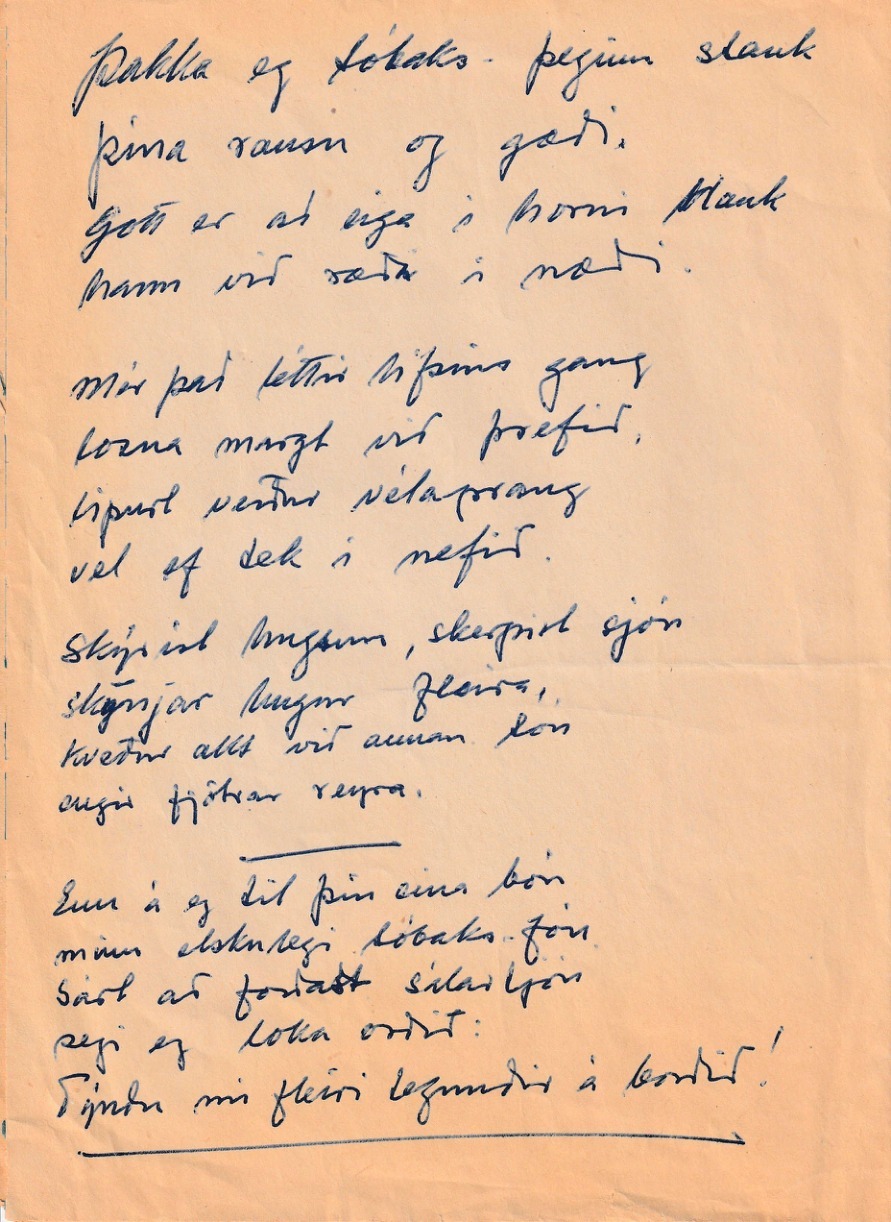 Þakka eg tóbaks- þeginn stauk
þína rausn og gæði.
Gott er að eiga í horni Hauk
hann við ræða í næði.
Mér það léttir lífsins gang
losna margt við þrefið,
lipurt verður vélaprang
vel ef tek í nefið.
Skýrist hugsun, skerpist sjón
skynjar hugur fleira,
kveður allt við annan tón
engir fjötrar reyra.
Enn á eg til þín eina bón
minn elskulegi tóbaks-Jón
Sárt að forðast sálartjón
segi eg loka orðið:
Týndu nú fleiri tegundir á borðið!